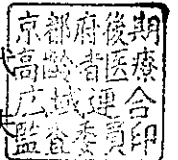 京都府後期
高齢者医療
広域連合
監査委員印